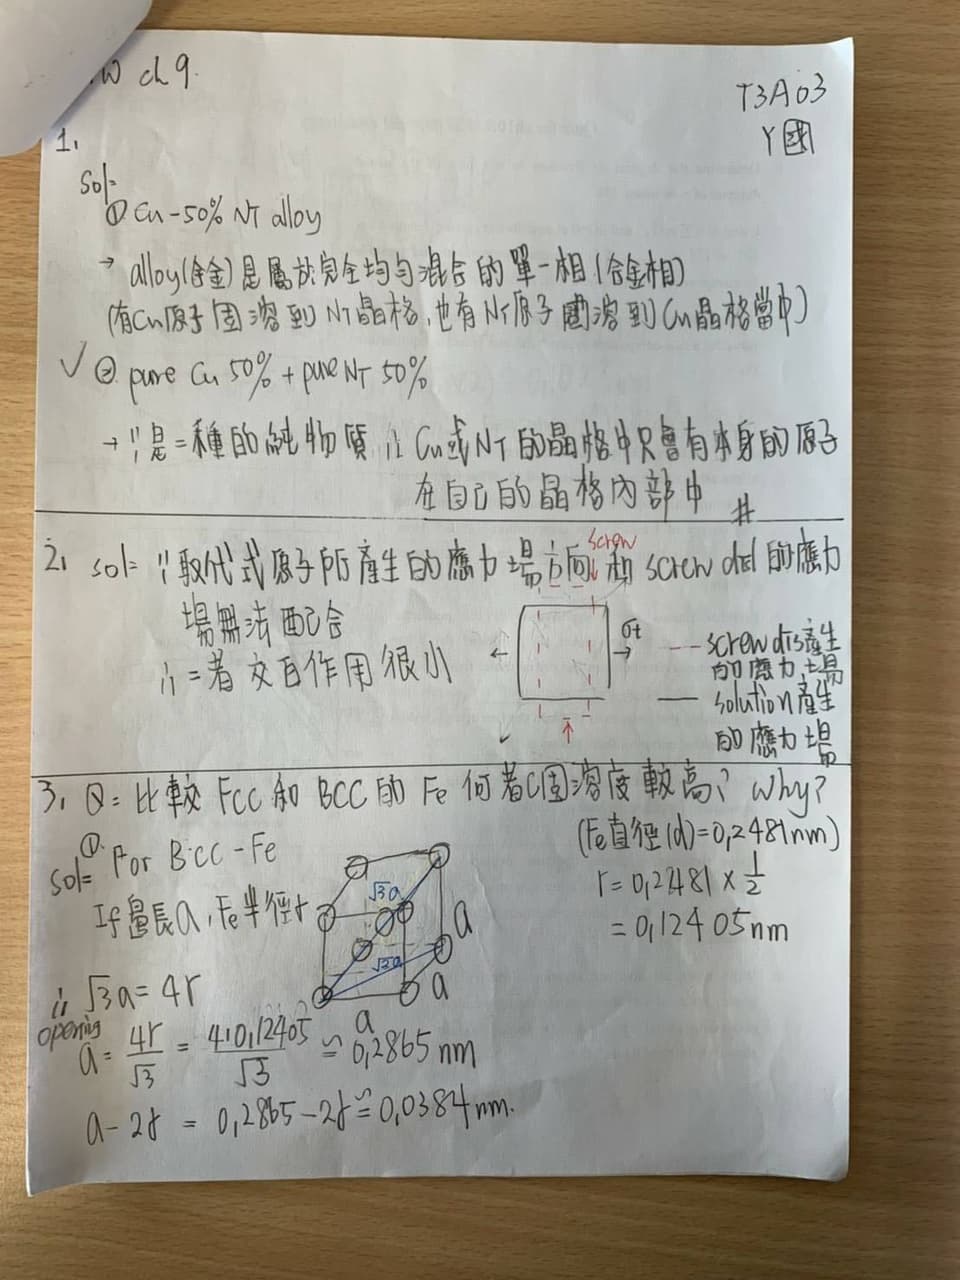 W ch 9.
T3A03
1.
sol=
① Cu-50% Ni alloy
→ alloy(合金)是屬於完全均勻混合的單一相(合金相)
(有Cu原子固溶到Ni晶格,也有Ni原子固溶到Cu晶格當中)
✓ ② pure Cu 50% + pure Ni 50%
→ ∵是=種的純物質 ∴ Cu或Ni的晶格中只會有本身的原子
在自己的晶格內部中 #
2. sol= ∵取代式原子所產生的應力場方向和 screw dist的應力
screw
場無法配合
∴=者交互作用很小
σt
--- screw dis產生
的應力場
— solution產生
的應力場
3. Q= 比較 FCC 和 BCC 的 Fe 何者C固溶度較高? Why?
(Fe直徑(d)=0.2481nm)
sol= ① For BCC-Fe
r = 0.2481 × 1/2
= 0.12405nm
If 邊長a, Fe半徑r
√3a
√2a
a
a
a
∴ √3a = 4r
opening
a = 4r/√3 = 4·0.12405/√3 ≒ 0.2865 nm
a - 2r = 0.2865 - 2r ≒ 0.0384 nm.